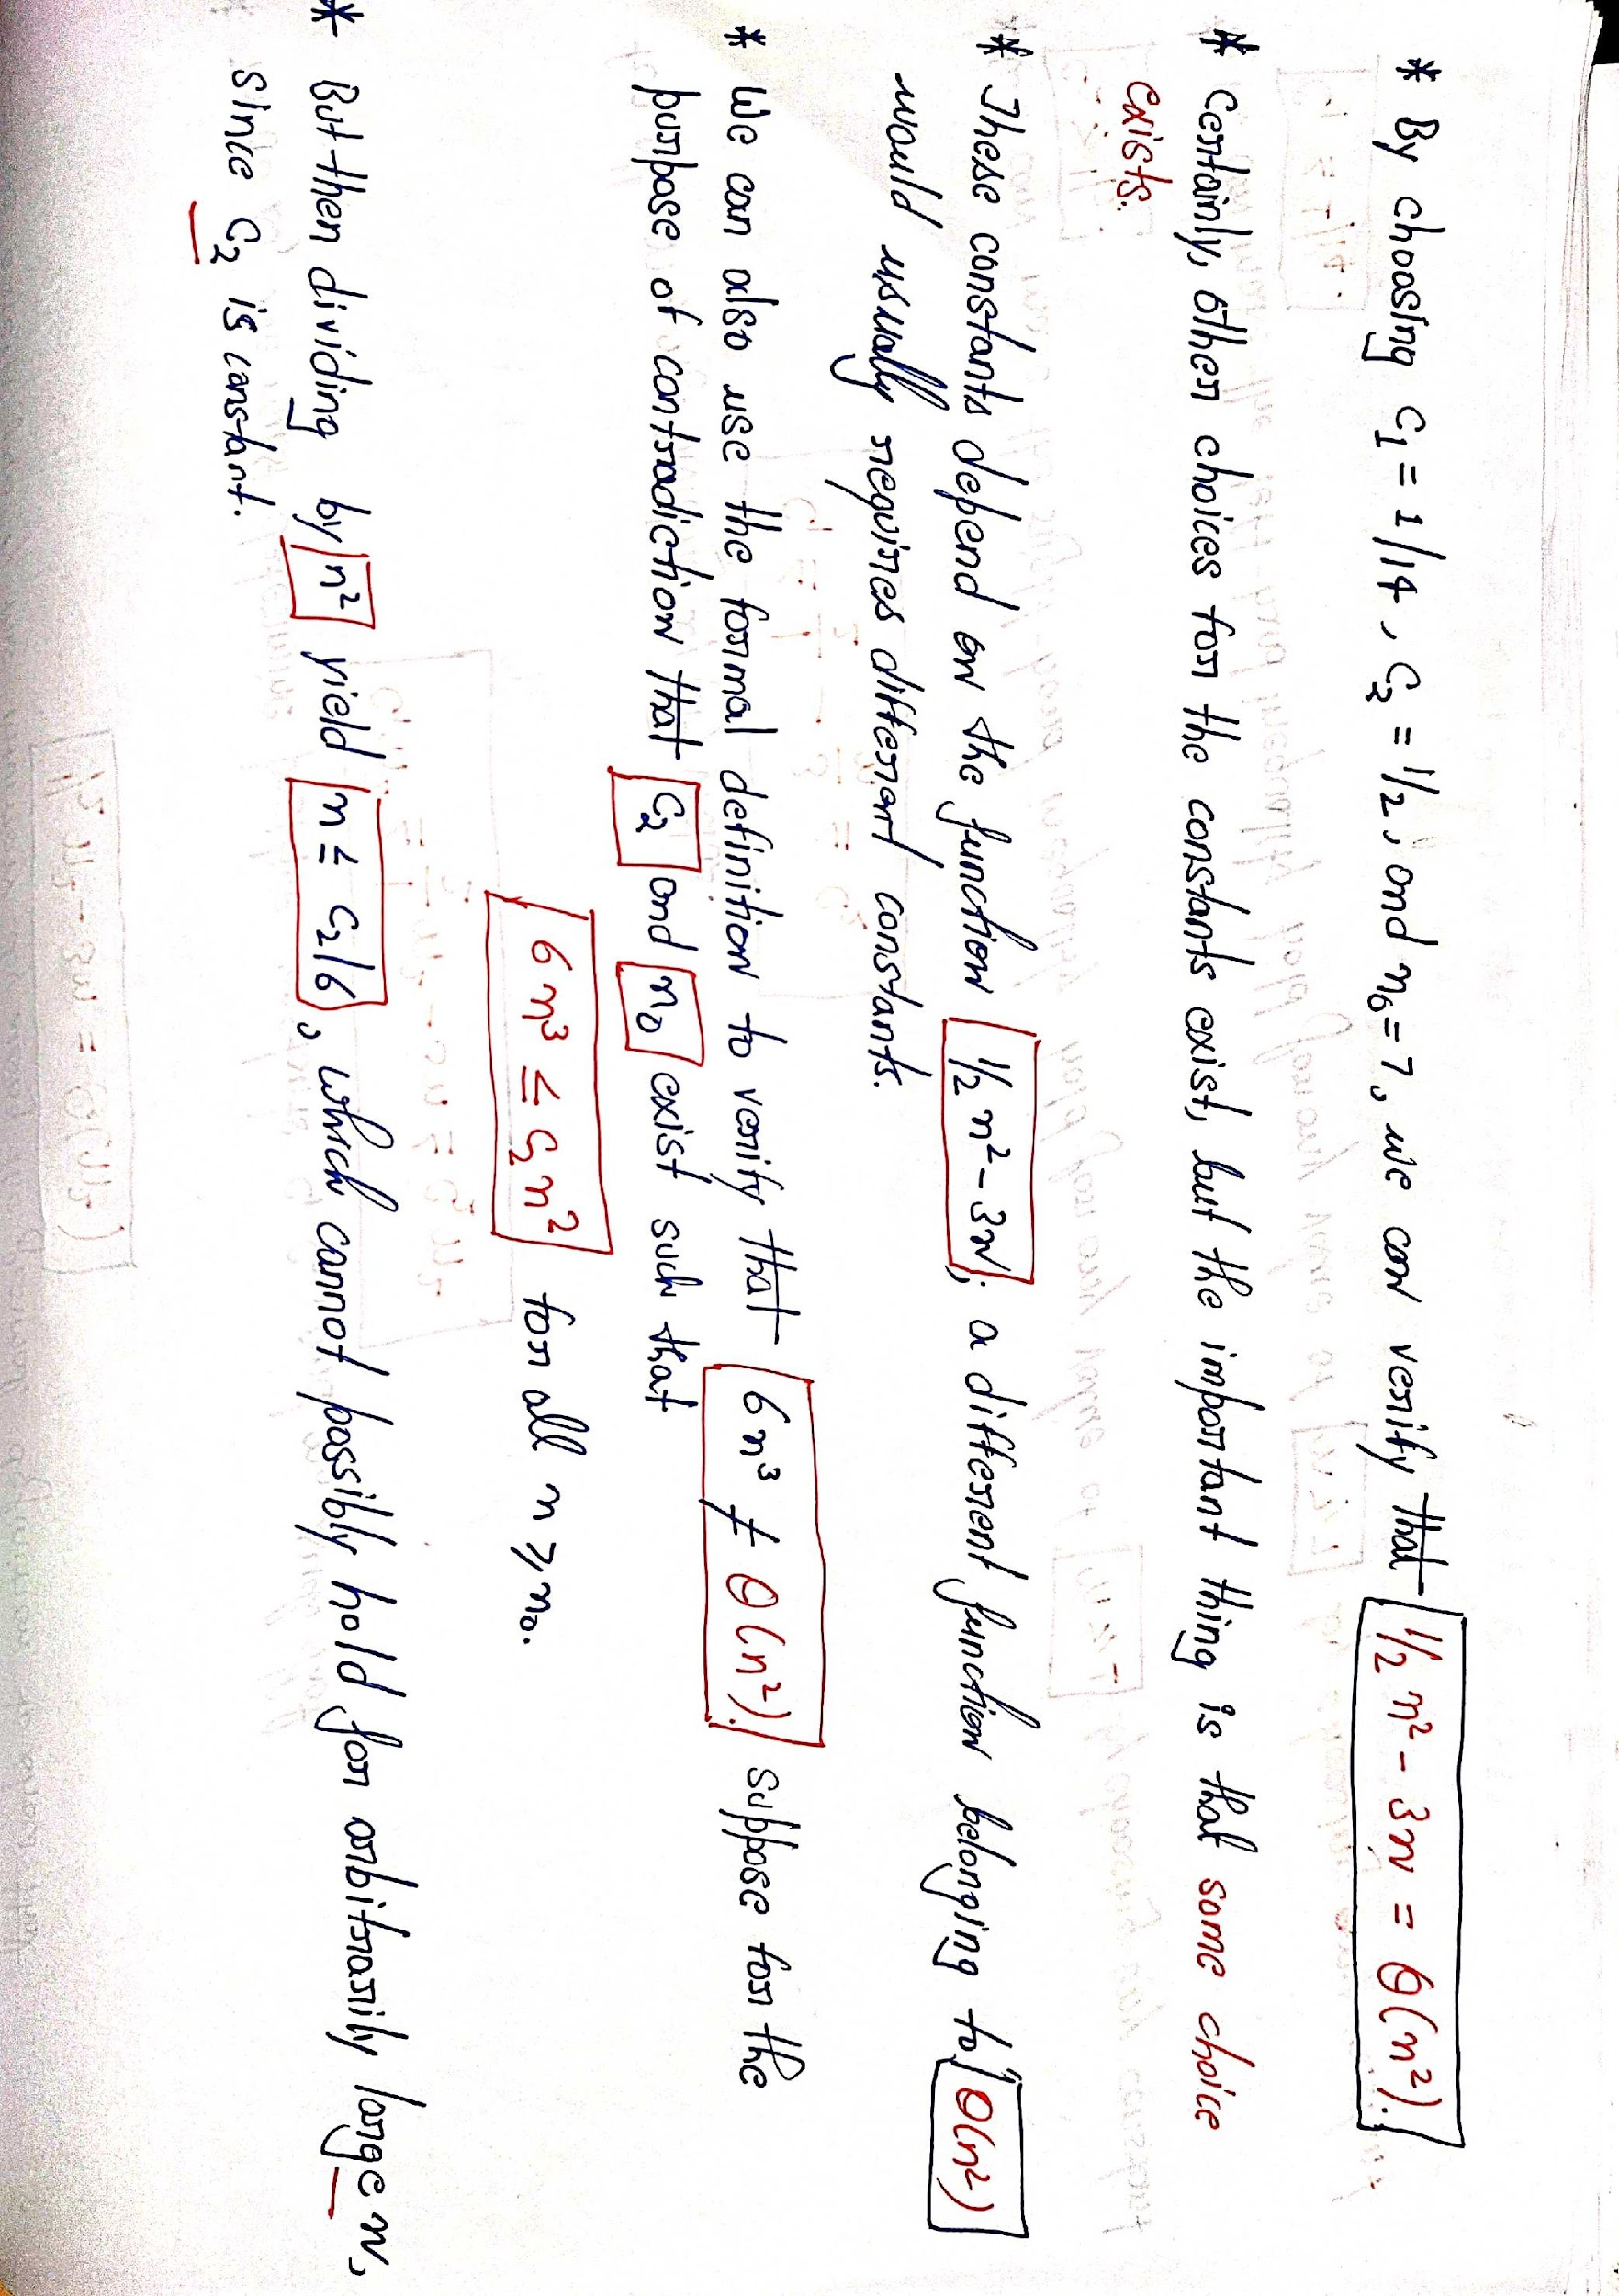 * By choosing C₁ = 1/14, C₂ = 1/2, and n₀ = 7, we can verify that 1/2 n² - 3n = Θ(n²).
* Certainly, other choices for the constants exist, but the important thing is that some choice
exists.
* These constants depend on the function 1/2 n² - 3n; a different function belonging to Θ(n²)
would usually requires different constants.
* We can also use the formal definition to verify that 6n³ ≠ Θ(n²). suppose for the
purpose of contradiction that C₂ and n₀ exist such that
6n³ ≤ C₂n² for all n ≥ n₀.
* But then dividing by n² yield n ≤ C₂/6, which cannot possibly hold for arbitrarily large n,
since C₂ is constant.